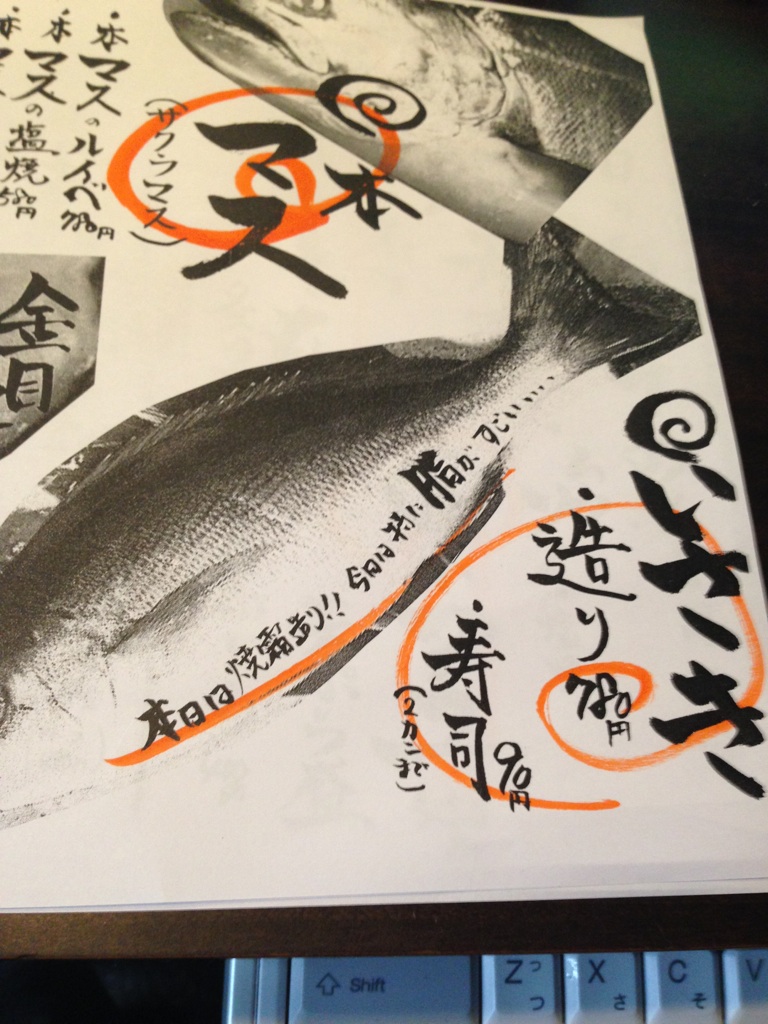 いさき
・造り 780円
・寿司 90円
(2カンまで)
今日は特に脂がすごい.....
本日は焼霜造り!!
本マス
(サクラマス)
・本マスのルイベ 780円
・本マスの塩焼 580円
・本マ
金目
Shift
Z っ つ
X さ
C そ
V